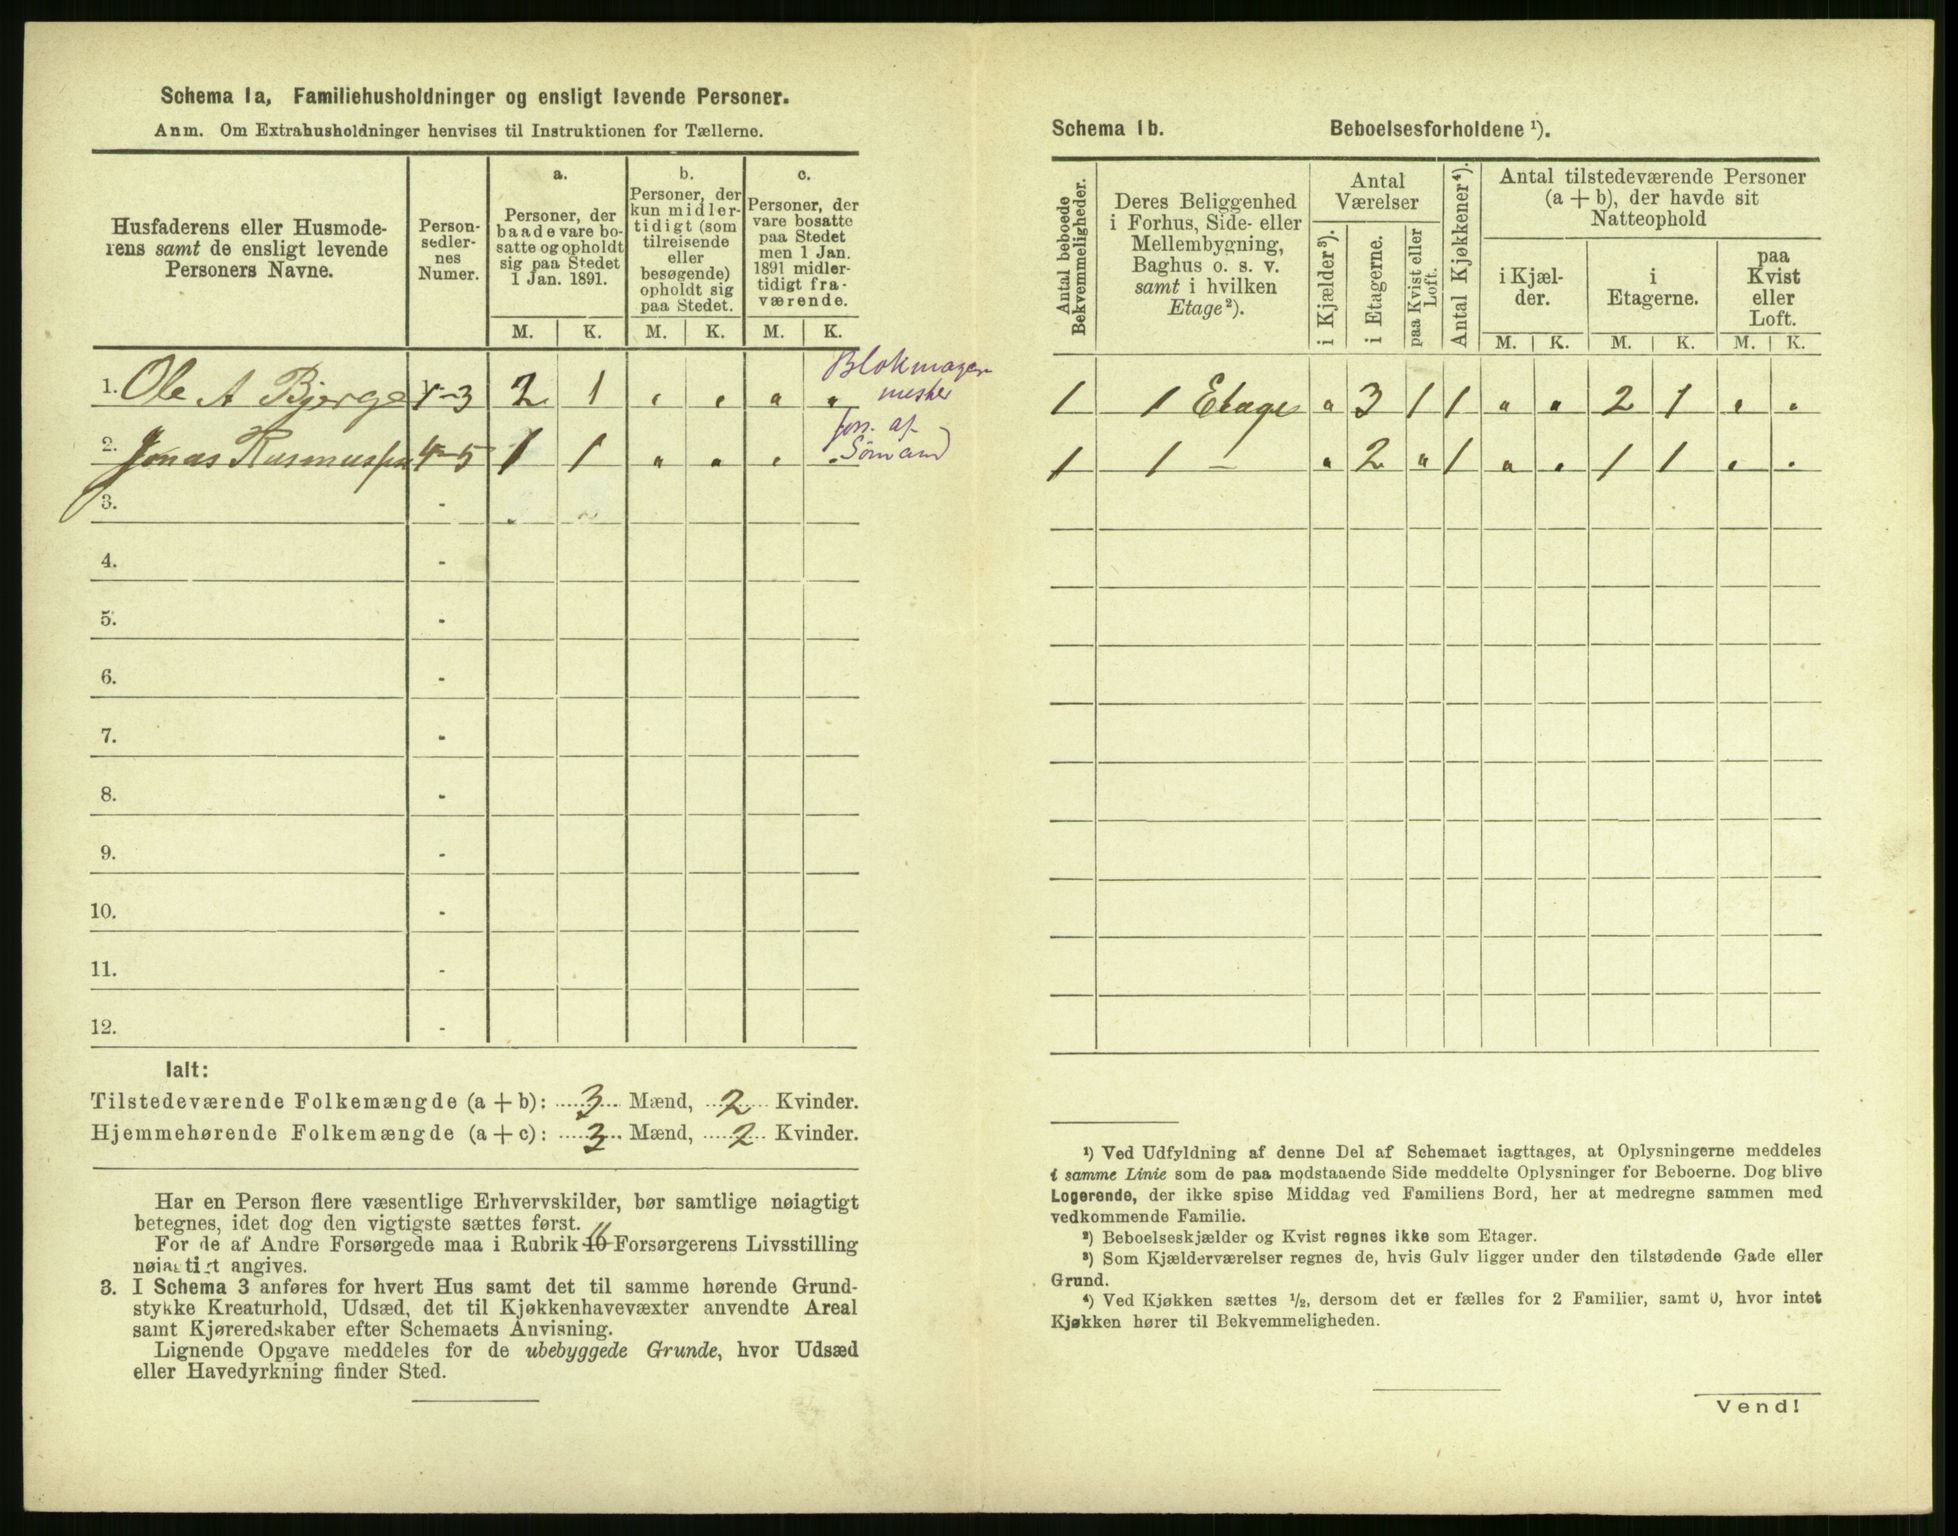 Schema 1a, Familiehusholdninger og ensligt levende Personer.
Anm. Om Extrahusholdninger henvises til Instruktionen for Tællerne.
Husfaderens eller Husmode-
rens samt de ensligt levende
Personers Navne.
Person-
sedler-
nes
Numer.
a.
Personer, der
baade vare bo-
satte og opholdt
sig paa Stedet
1 Jan. 1891.
b.
Personer, der
kun midler-
tidigt (som
tilreisende
eller
besøgende)
opholdt sig
paa Stedet.
c.
Personer, der
vare bosatte
paa Stedet
men 1 Jan.
1891 midler-
tidigt fra-
værende.
M. K. M. K. M. K.
1. Ole A Bjerge 1-3 2 1 " " " " Blokmager
mester
2. Jonas Rasmussen 4-5 1 1 " " " " fors. af
Sømand
3. -
4. -
5. -
6. -
7. -
8. -
9. -
10. -
11. -
12. -
Ialt:
Tilstedeværende Folkemængde (a + b): 3 Mænd, 2 Kvinder.
Hjemmehørende Folkemængde (a + c): 3 Mænd, 2 Kvinder.
Har en Person flere væsentlige Erhvervskilder, bør samtlige nøiagtigt
betegnes, idet dog den vigtigste sættes først.
16
For de af Andre Forsørgede maa i Rubrik 10 Forsørgerens Livsstilling
nøiagtigt angives.
3. I Schema 3 anføres for hvert Hus samt det til samme hørende Grund-
stykke Kreaturhold, Udsæd, det til Kjøkkenhavevæxter anvendte Areal
samt Kjøreredskaber efter Schemaets Anvisning.
Lignende Opgave meddeles for de ubebyggede Grunde, hvor Udsæd
eller Havedyrkning finder Sted.
Schema 1b. Beboelsesforholdene ¹).
Antal beboede
Bekvemmeligheder.
Deres Beliggenhed
i Forhus, Side- eller
Mellembygning,
Baghus o. s. v.
samt i hvilken
Etage²).
Antal
Værelser
i Kjælder³).
i Etagerne.
paa Kvist eller
Loft.
Antal Kjøkkener⁴).
Antal tilstedeværende Personer
(a + b), der havde sit
Natteophold
i Kjæl-
der.
i
Etagerne.
paa
Kvist
eller
Loft.
M. K. M. K. M. K.
1 1 Etage " 3 1 1 " " 2 1 " "
1 1 — " 2 " 1 " " 1 1 " "
¹) Ved Udfyldning af denne Del af Schemaet iagttages, at Oplysningerne meddeles
i samme Linie som de paa modstaaende Side meddelte Oplysninger for Beboerne. Dog blive
Logerende, der ikke spise Middag ved Familiens Bord, her at medregne sammen med
vedkommende Familie.
²) Beboelseskjælder og Kvist regnes ikke som Etager.
³) Som Kjælderværelser regnes de, hvis Gulv ligger under den tilstødende Gade eller
Grund.
⁴) Ved Kjøkken sættes ½, dersom det er fælles for 2 Familier, samt 0, hvor intet
Kjøkken hører til Bekvemmeligheden.
Vend!